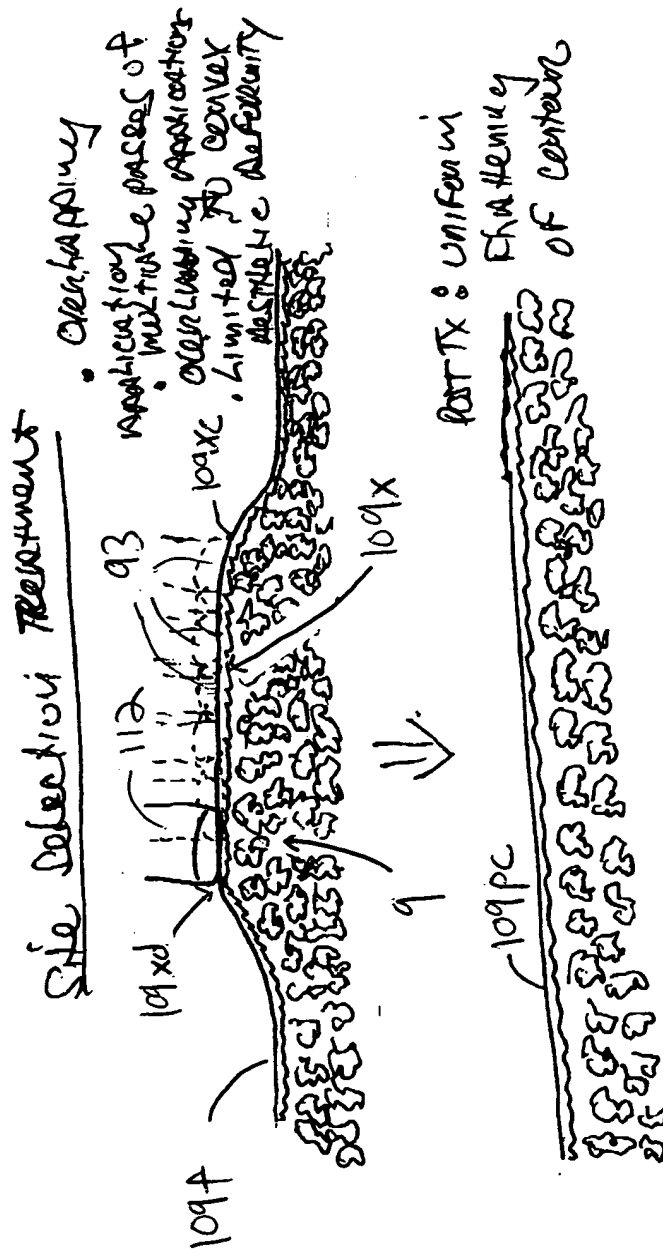 Site Selection Treatment
• Overlapping
Application
• multiple passes of
overlapping application
• Limited to convex
aesthetic deformity
109xd
112
93
109xc
109f
9
109x
Post Tx: Uniform
flattening
of contour
109pc